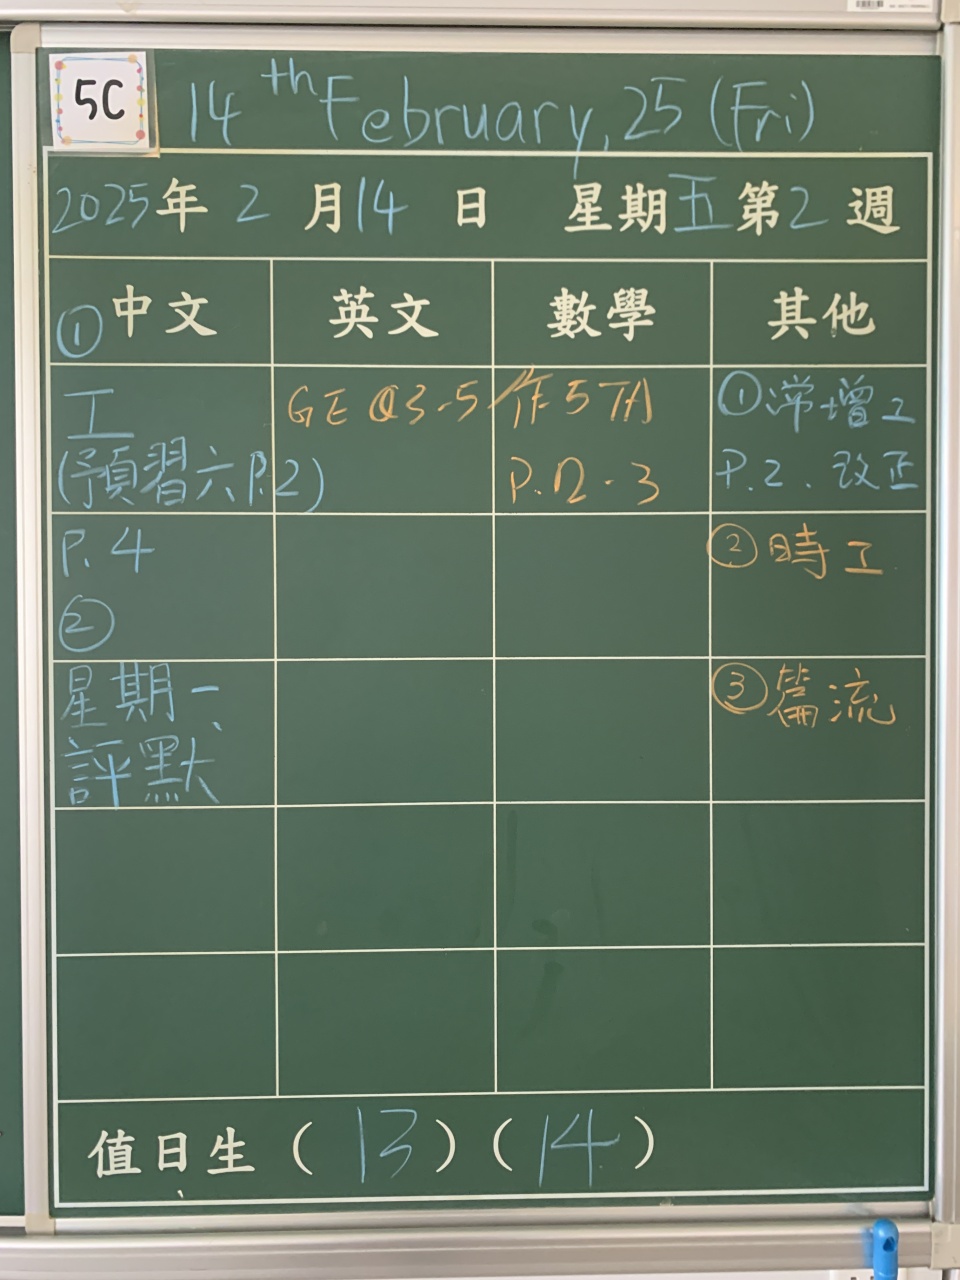 5C
14th February, 25 (Fri)
2025年 2 月 14 日 星期五 第2週
① 中文
英文
數學
其他
工
(預習六 P.2)
P.4
②
星期一、
評默
GE Q3-5
作5TA
P.12-3
① 常增工
P.2. 改正
② 時工
③ 篇流
值日生 ( 13 ) ( 14 )